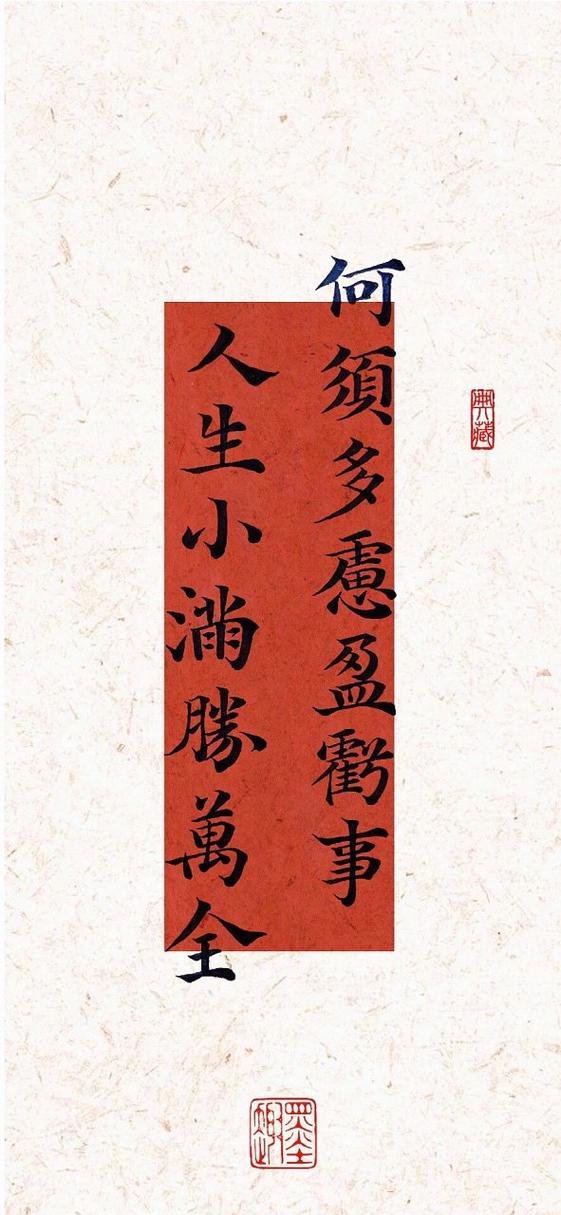 何須多慮盈虧事
人生小滿勝萬全
典藏
墨趣